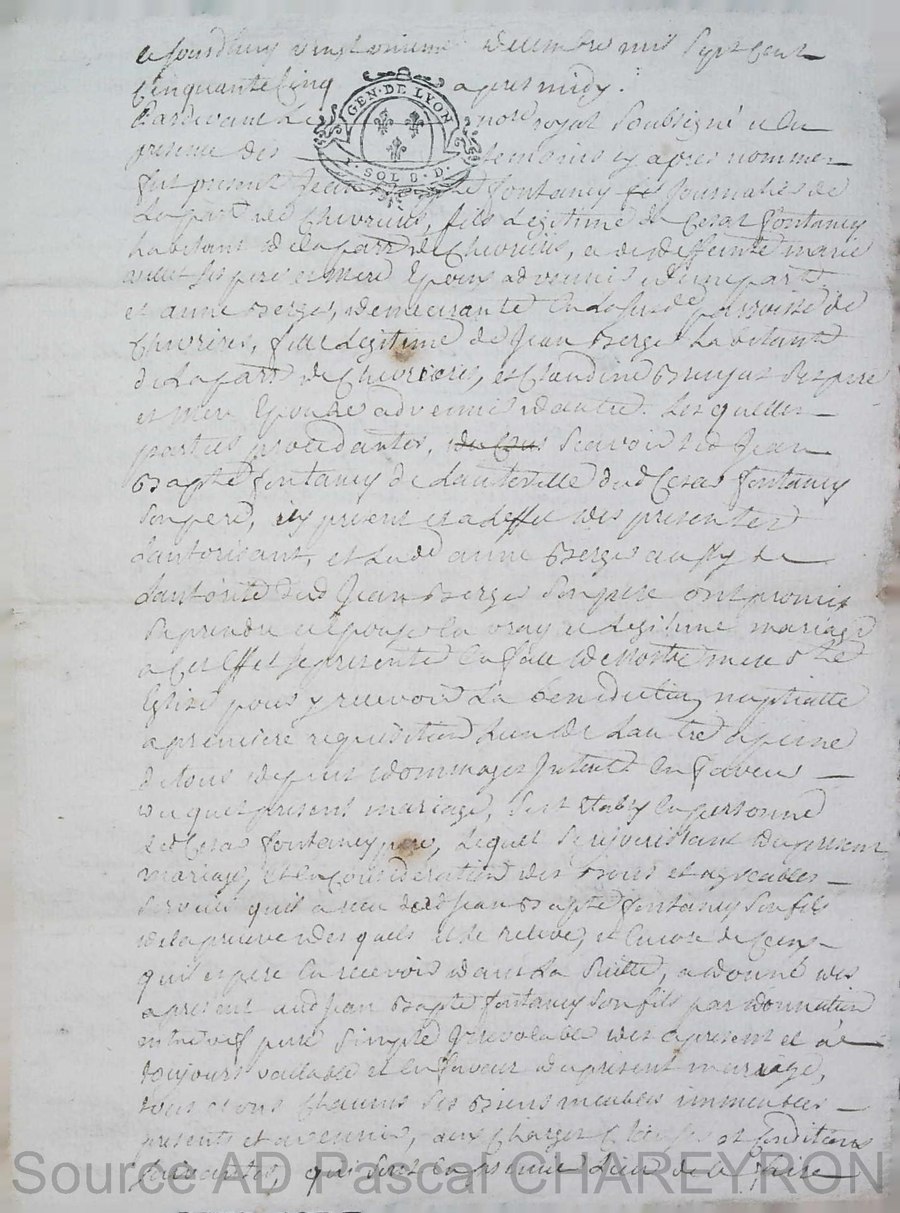 cejourdhuy vingt onieme decembre mil sept cent
Cinquante Cinq apres midy :
GEN · DE LYON
SOLS · D ·
Pardevant Le nore royal Soubsigné et en
presence des temoins cy apres nommer
fut present Jean Bapte fontaney journalier de
La parr de Chevrieres, fils Legitime de Cesar fontaney
habitant de la parr de Chevrieres, et de deffeinte marie
ses pere et mere Epoux advennir d'une part
et anne Berger, demeurante en lad parroisse de
Chevrieres, fille Legitime de Jean Berger habitant
de La parr de Chevrieres, et Claudine ses pere
et mere Epouse advennir d'autre. Lesquelles
parties procedantes, Scavoir led Jean
Bapte fontaney de L'autorité dud Cesar fontaney
Son pere, icy present et a L'effet des presentes
L'autorisant, et Lade anne Berger aussy de
L'autorité dud Jean Berger Son pere ont promis
Se prendre et Epouser en vray et Legitime mariage
a cet Effet se presenter en face de Nostre mere Ste
Eglise pour y recevoir La benediction nuptialle
a premiere requisition L'un de L'autre a peine
de tous depens dommages Interet En faveur
duquel present mariage, S'est Etably en personne
Led Cesar fontaney pere, Lequel Se rejouissant du present
mariage, et En Consideration des Bons et agreables
Services qu'il a reçu dud Jean Bapte fontaney Son fils
de la preuve desquels il le releve, et Encore de Ceux
qu'il espere En recevoir dans La Suitte, a donné des
a present aud Jean Bapte fontaney Son fils par donnation
entre vif pure Simple Irrevocable des a present et a
toujours vallable et En faveur du present mariage,
tous et uns Chacuns Ses Biens meubles immeubles
presents et avennir, aux Charges et Conditions
Suivantes, qui Sont En premier Lieu de Se faire
Source AD Pascal CHAREYRON